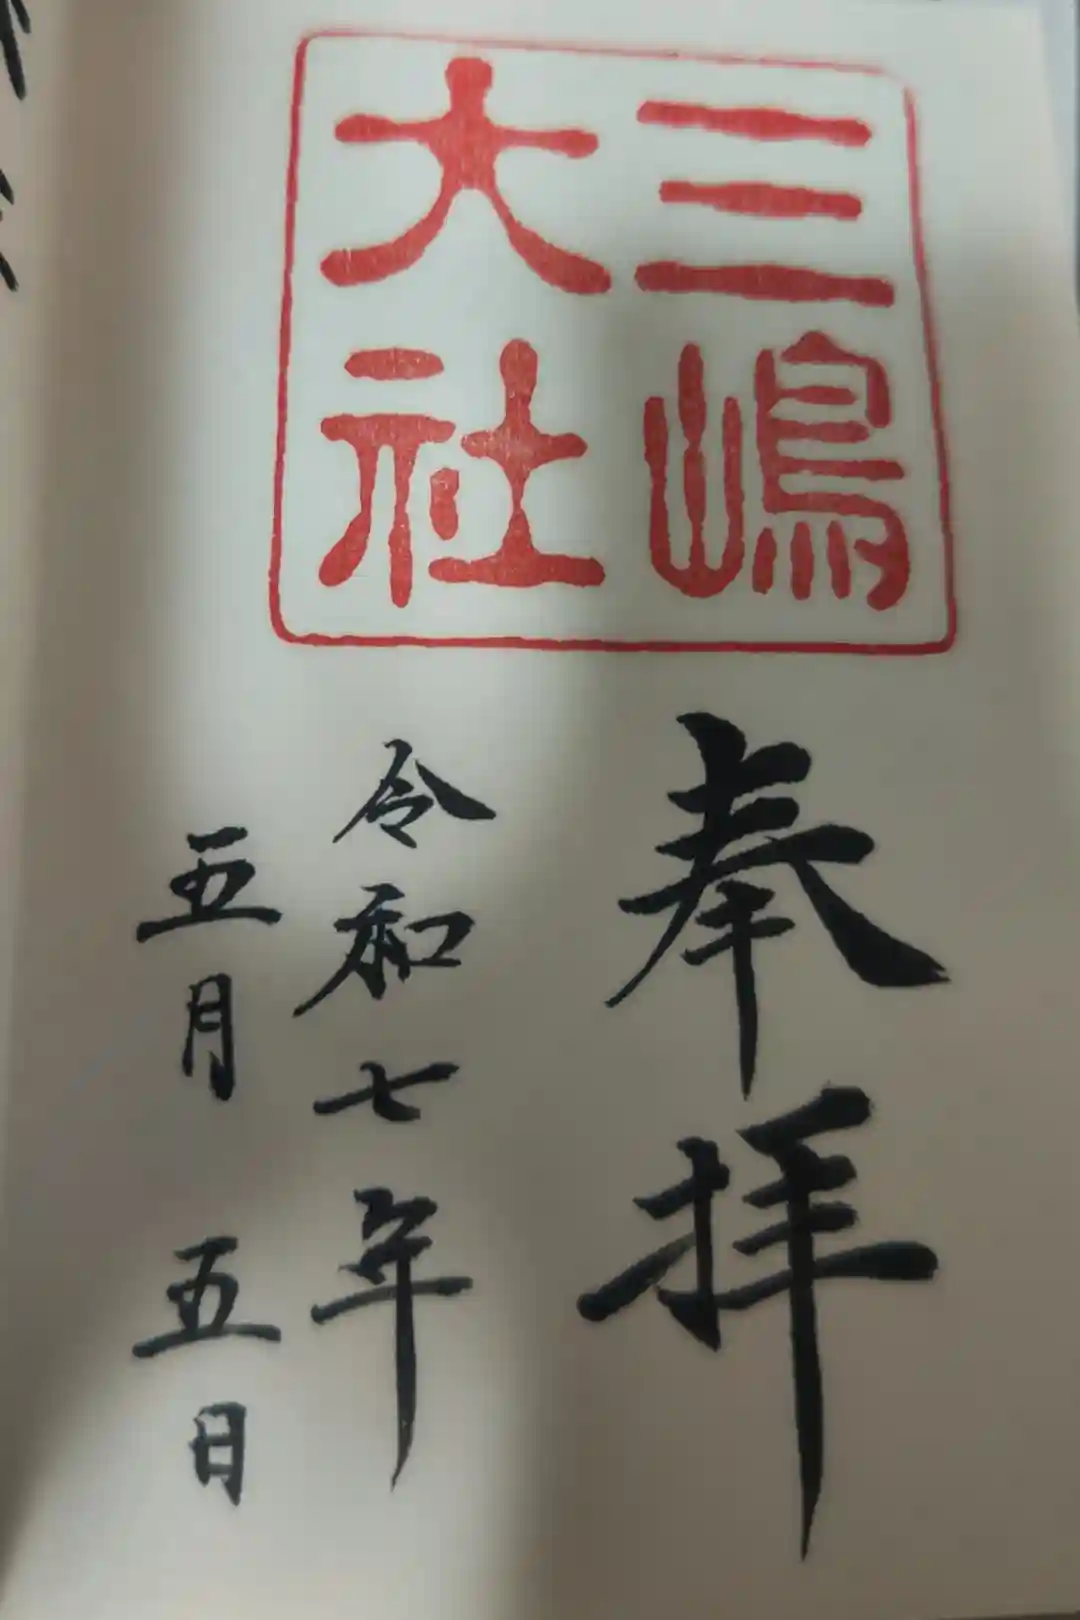 三嶋
大社
奉拝
令和七年
五月五日